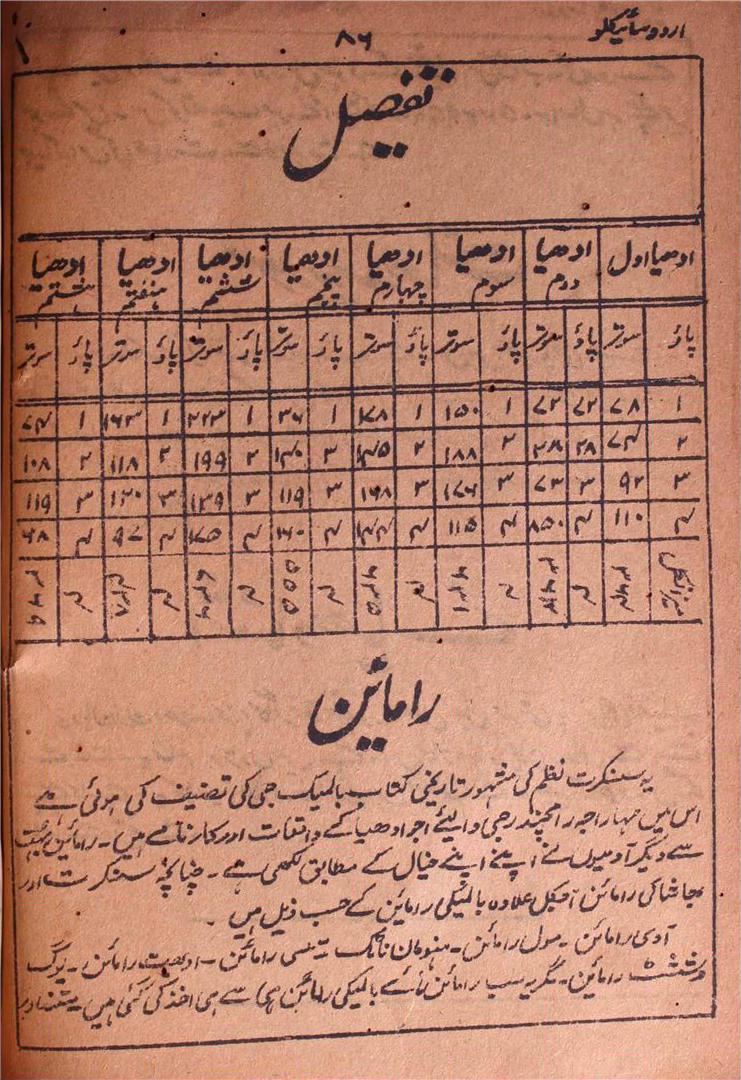 اردو سائیکلو
۸۶
تفصیل
ادھیا اول ادھیا دوم ادھیا سوم ادھیا چہارم ادھیا پنجم ادھیا ششم ادھیا ہفتم ادھیا ہشتم
پاؤ سوتر پاؤ سوتر پاؤ سوتر پاؤ سوتر پاؤ سوتر پاؤ سوتر پاؤ سوتر پاؤ سوتر
۱ ۷۸ ۷۲ ۷۲ ۱ ۱۵۰ ۱ ۱۷۸ ۱ ۳۶ ۱ ۲۲۳ ۱ ۱۶۳ ۱ ۷۴
۲ ۷۴ ۳۸ ۳۸ ۲ ۱۸۸ ۲ ۱۴۵ ۲ ۱۴۰ ۲ ۱۹۹ ۲ ۱۱۸ ۲ ۱۰۸
۳ ۹۲ ۳ ۷۳ ۳ ۱۷۶ ۳ ۱۶۸ ۳ ۱۱۹ ۳ ۱۳۹ ۳ ۱۲۰ ۳ ۱۱۹
۴ ۱۱۰ ۴ ۸۵۰ ۴ ۱۱۵ ۴ ۱۴۴ ۴ ۱۶۰ ۴ ۱۷۵ ۴ ۹۷ ۴ ۶۸
میزان کل ۴ ۴ ۴ ۴ ۵۵۵ ۴ ۴ ۴
رامائین
یہ سنسکرت نظم کی مشہور تاریخی کتاب بالمیک جی کی تصنیف کی ہوئی ہے
اس میں مہاراجہ رامچندر جی والئے اجودھیا کے واقعات اور کارنامے ہیں۔ رامائین بہت
سے دیگر آدمیوں نے اپنے اپنے خیال کے مطابق لکھی ہے۔ چنانچہ سنسکرت اور
بھاشا کی رامائن آجکل علاوہ بالمیکی رامائین کے حسب ذیل ہیں۔
آدی رامائن۔ مول رامائن۔ ہنومان ناٹک تلسی رامائن۔ ادبھت رامائن۔ یوگ
وششٹ رامائین۔ مگر یہ سب رامائن ہائے بالمیکی رامائن ہی سے ہی اخذ کی گئی ہیں۔